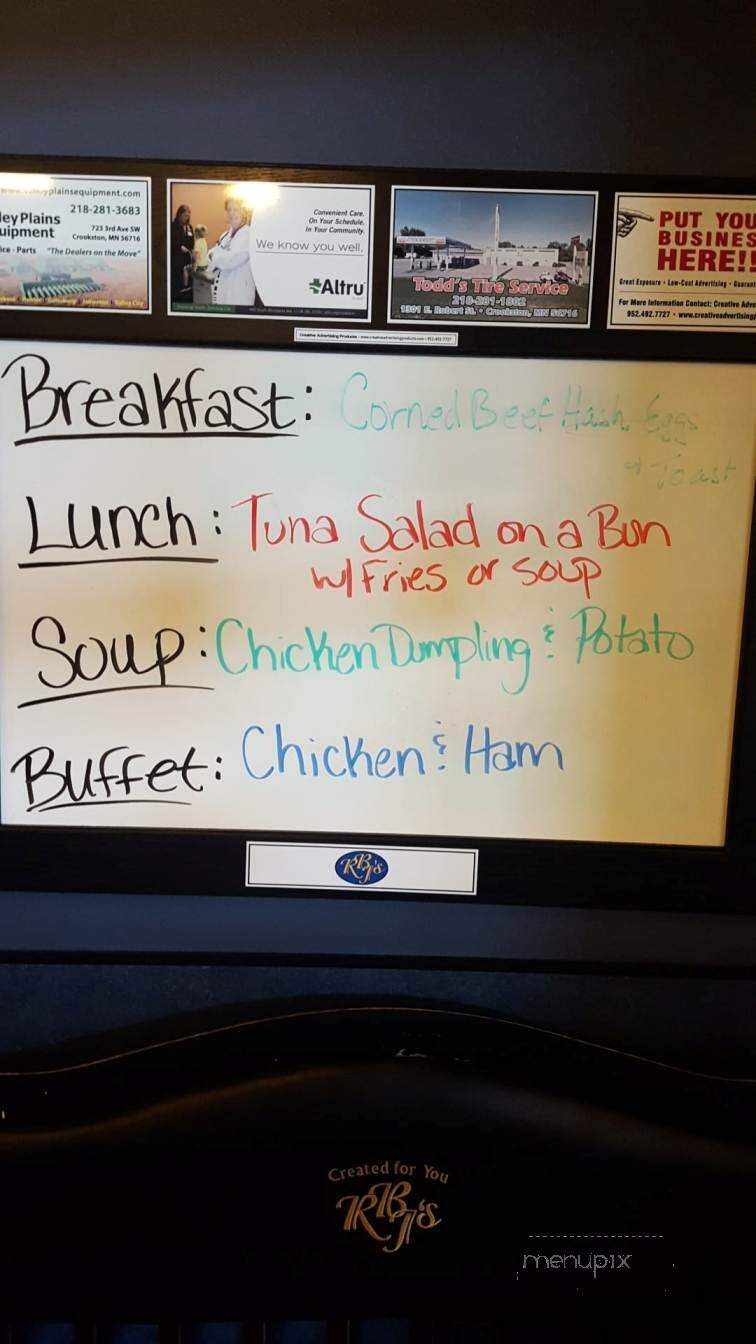 plainsequipment.com
218-281-3683
ley Plains
uipment
723 3rd Ave SW
Crookston, MN 56716
ice - Parts "The Dealers on the Move"
Convenient Care.
On Your Schedule.
In Your Community.
We know you well.
Altru
Todd's Tire Service
218-281-1002
1301 E. Robert St. • Crookston, MN 56716
PUT YOU
BUSINES
HERE!!
Great Exposure • Low-Cost Advertising • Guarant
For More Information Contact: Creative Adve
952.492.7727 • www.creativeadvertisingp
Creative Advertising Products - www.creativeadvertisingproducts.com - 952.492.7727
Breakfast: Corned Beef Hash, Eggs
& Toast
Lunch: Tuna Salad on a Bun
w/ Fries or Soup
Soup: Chicken Dumpling & Potato
Buffet: Chicken & Ham
RBJ's
Created for You
RBJ's
menupix